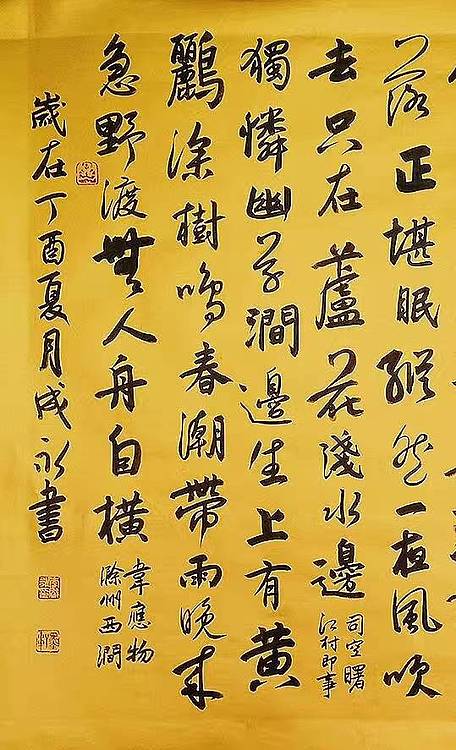 落正堪眠縱然一夜風吹
去只在蘆花淺水邊
司空曙
江村即事
獨憐幽草澗邊生上有黄
鸝深樹鳴春潮帶雨晚来
急野渡無人舟自橫
韋應物
滁州西澗
歲在丁酉夏月成永書